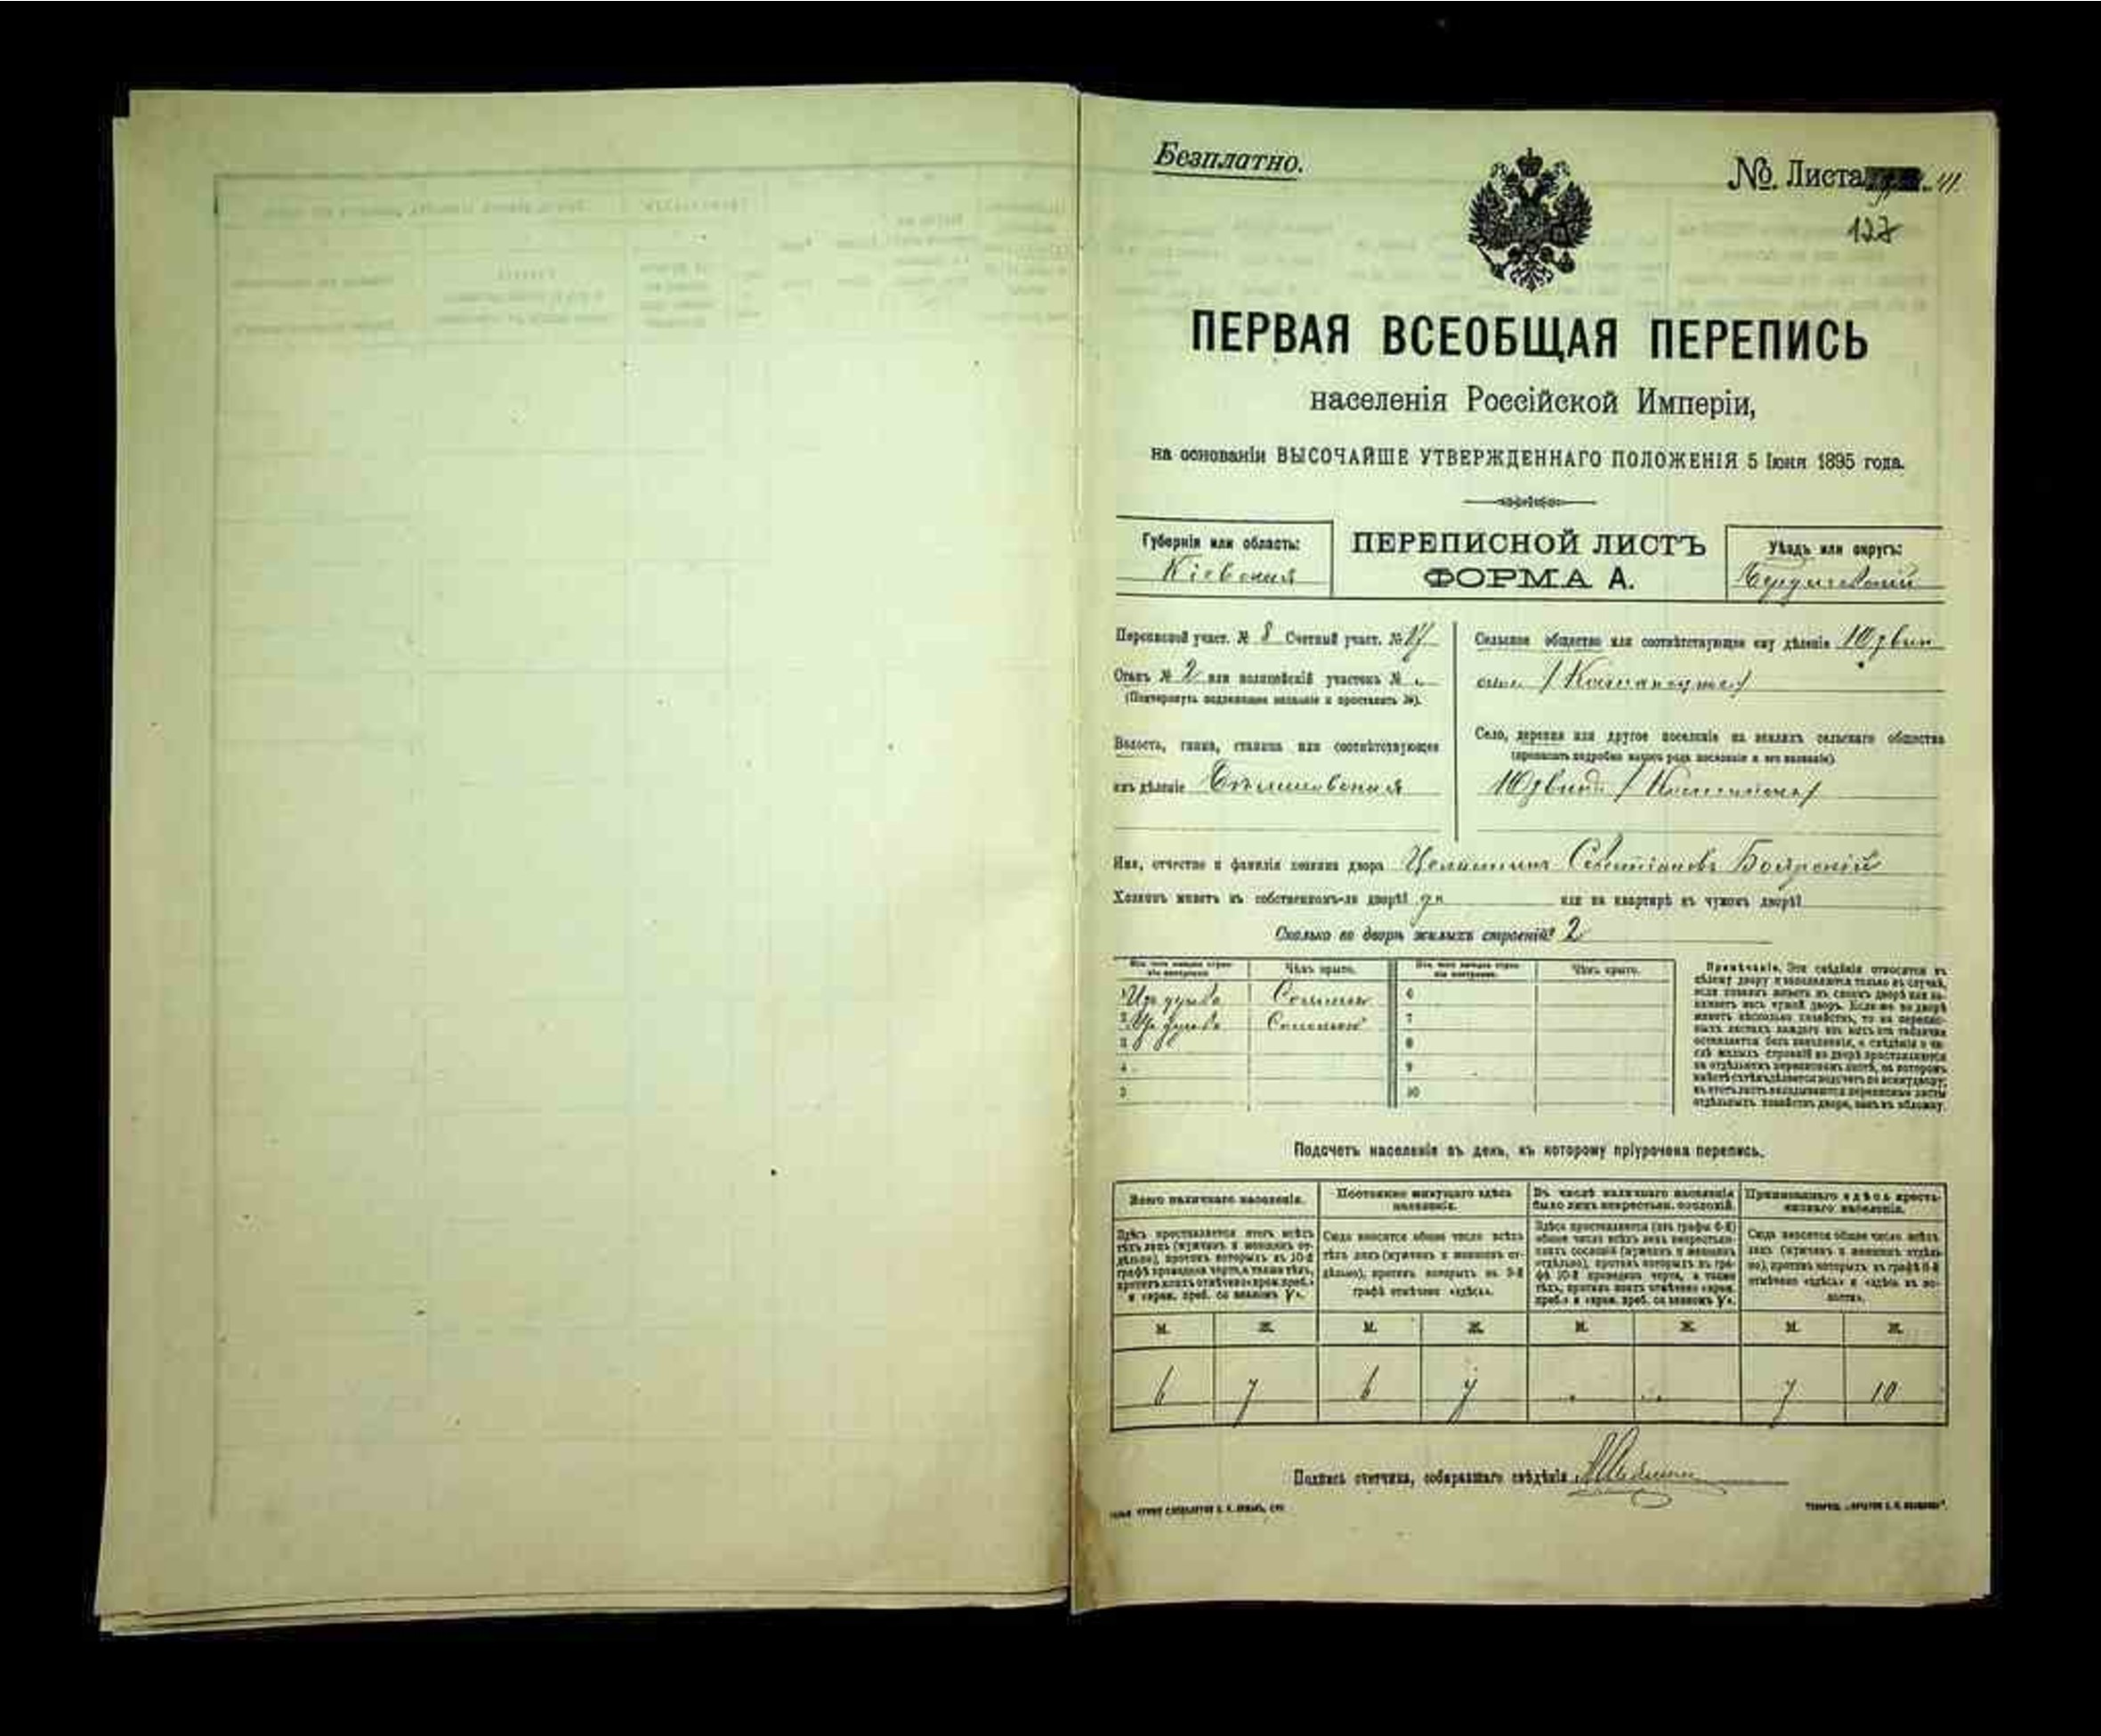 Безплатно.
№. Листа 41.
127
ПЕРВАЯ ВСЕОБЩАЯ ПЕРЕПИСЬ
населенія Россійской Имперіи,
на основаніи ВЫСОЧАЙШЕ УТВЕРЖДЕННАГО ПОЛОЖЕНІЯ 5 Іюня 1895 года.
Губернія или область:
Кіевская
ПЕРЕПИСНОЙ ЛИСТЪ
ФОРМА А.
Уѣздъ или округъ:
Бердичевскій
Переписной участ. № 8 Счетный участ. №
Станъ № 2 или полицейскій участокъ №
(Подчеркнуть подлежащее названіе и проставить №).
Волость, гмина, станица или соотвѣтствующее
имъ дѣленіе
Сельское общество или соотвѣтствующее ему дѣленіе
Село, деревня или другое поселеніе на земляхъ сельскаго общества
(прописать подробно какого рода поселеніе и его названіе)
Имя, отчество и фамилія хозяина двора Боярскій
Хозяинъ живетъ въ собственномъ-ли дворѣ? да или на квартирѣ въ чужомъ дворѣ?
Сколько во дворѣ жилыхъ строеній? 2
Изъ чего каждое строеніе построено. Чѣмъ крыто. Изъ чего каждое строеніе построено. Чѣмъ крыто.
1 Изъ дуба Соломою 6
2 Изъ дуба Соломою 7
3 8
4 9
5 10
Примѣчаніе. Эти свѣдѣнія относятся къ
цѣлому двору и заполняются только въ случаѣ,
если хозяинъ живетъ въ своемъ дворѣ или за-
нимаетъ весь чужой дворъ. Если-же во дворѣ
живетъ нѣсколько хозяйствъ, то на перепис-
ныхъ листахъ каждаго изъ нихъ эта табличка
оставляется безъ заполненія, а свѣдѣнія о чи-
слѣ жилыхъ строеній во дворѣ проставляются
на отдѣльномъ переписномъ листѣ, на которомъ
вмѣстѣ съ тѣмъ дѣлается подсчетъ по всему двору;
въ этотъ листъ вкладываются переписные листы
отдѣльныхъ хозяйствъ двора, какъ въ обложку.
Подсчетъ населенія въ день, къ которому пріурочена перепись.
Всего наличнаго населенія.
Здѣсь проставляется итогъ всѣхъ
тѣхъ лицъ (мужчинъ и женщинъ от-
дѣльно), противъ которыхъ въ 10-й
графѣ проведена черта, а также тѣхъ,
противъ коихъ отмѣчено «врем. преб.»
и «врем. преб. со знакомъ V».
Постоянно живущаго здѣсь
населенія.
Сюда вносится общее число всѣхъ
тѣхъ лицъ (мужчинъ и женщинъ от-
дѣльно), противъ которыхъ въ 9-й
графѣ отмѣчено «здѣсь».
Въ числѣ наличнаго населенія
было лицъ некрестьян. сословій.
Здѣсь проставляется (изъ графы 6-й)
общее число всѣхъ лицъ некрестьян-
скихъ сословій (мужчинъ и женщинъ
отдѣльно), противъ которыхъ въ гра-
фѣ 10-й проведена черта, а также
тѣхъ, противъ коихъ отмѣчено «врем.
преб.» и «врем. преб. со знакомъ V».
Приписаннаго здѣсь кресть-
янскаго населенія.
Сюда вносится общее число всѣхъ
лицъ (мужчинъ и женщинъ отдѣль-
но), противъ которыхъ въ графѣ 8-й
отмѣчено «здѣсь» и «здѣсь въ во-
лости».
М. Ж. М. Ж. М. Ж. М. Ж.
6 7 6 7 7 10
Подпись счетчика, собиравшаго свѣдѣнія